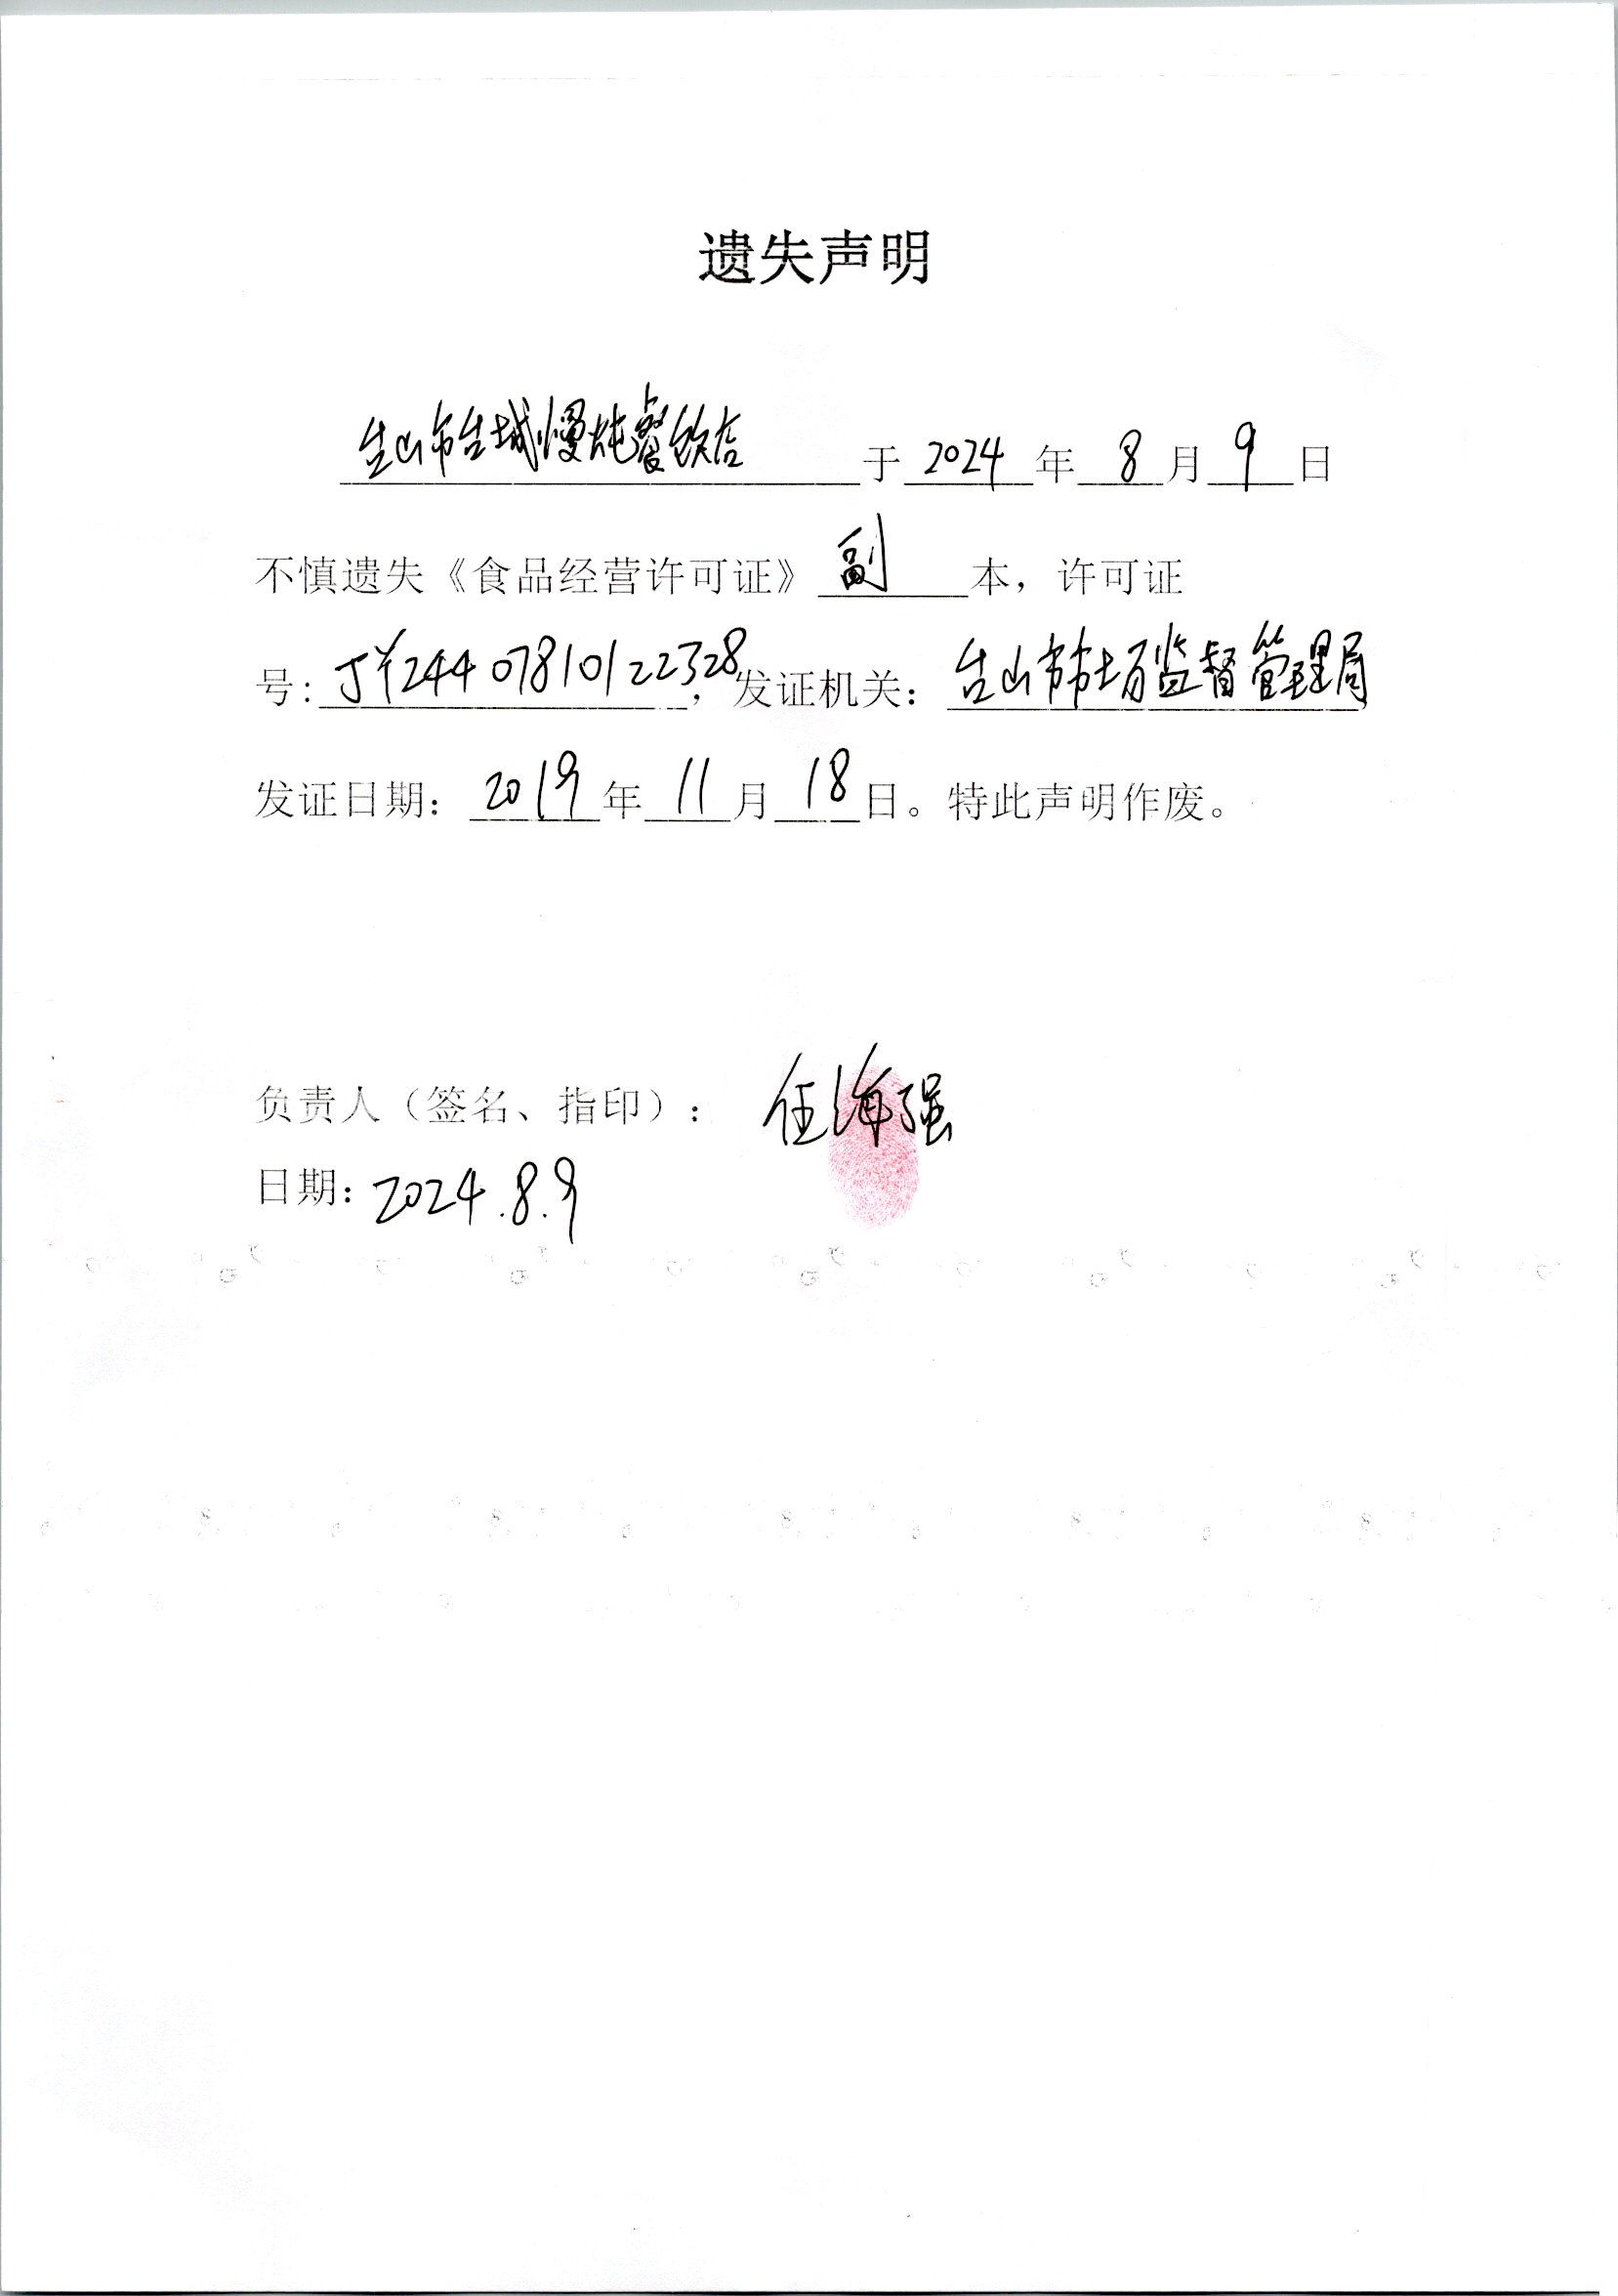 遗失声明
台山市台城慢炖餐饮店于2024年8月9日
不慎遗失《食品经营许可证》副本，许可证
号：JY24407810122328，发证机关：台山市市场监督管理局
发证日期：2019年11月18日。特此声明作废。
负责人（签名、指印）：任海强
日期：2024.8.9